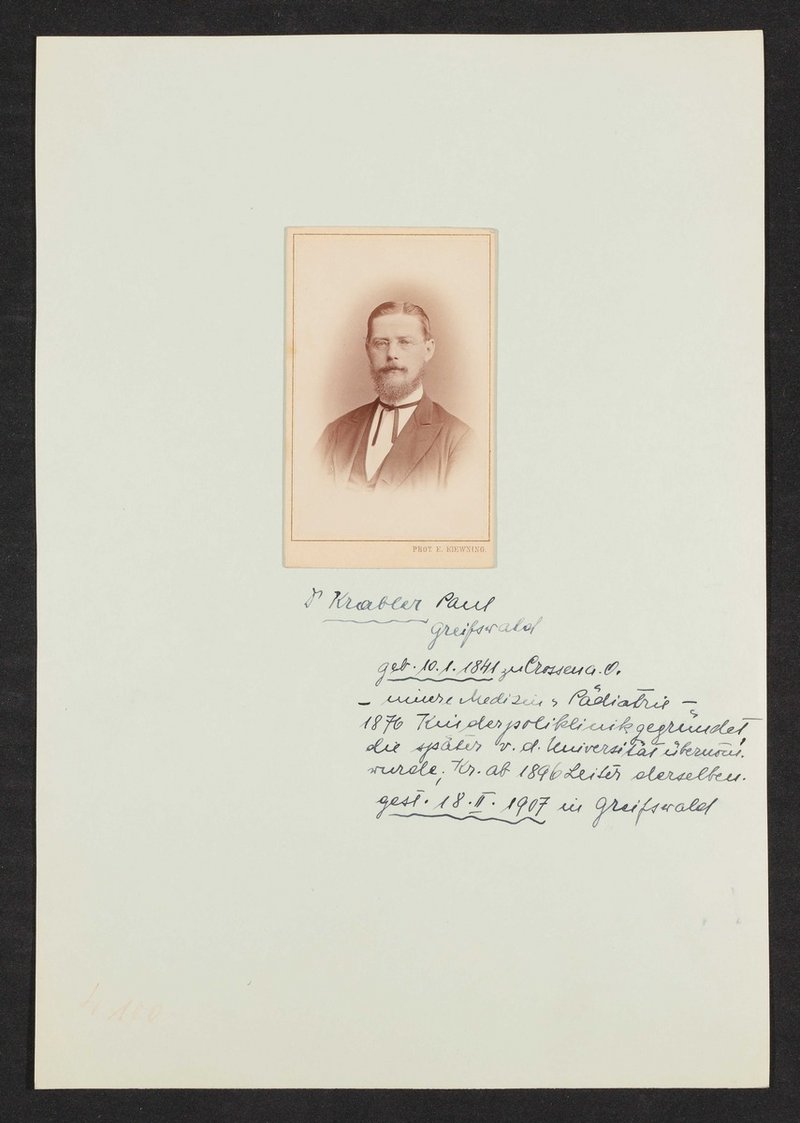 PHOT. E. KIEWNING.
Dr Krabler Paul
Greifswald
geb. 10.1.1841 zu Crossen a. O.
– innere Medizin u Pädiatrie –
1876 Kinderpoliklinik gegründet,
die später v. d. Universität übernom.
wurde, Kr. ab 1896 Leiter derselben.
gest. 18.II.1907 in Greifswald
4100